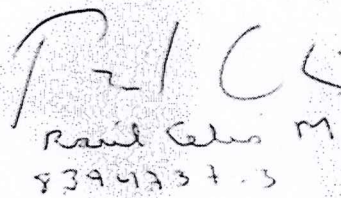 Raúl Celis M
8394737-3